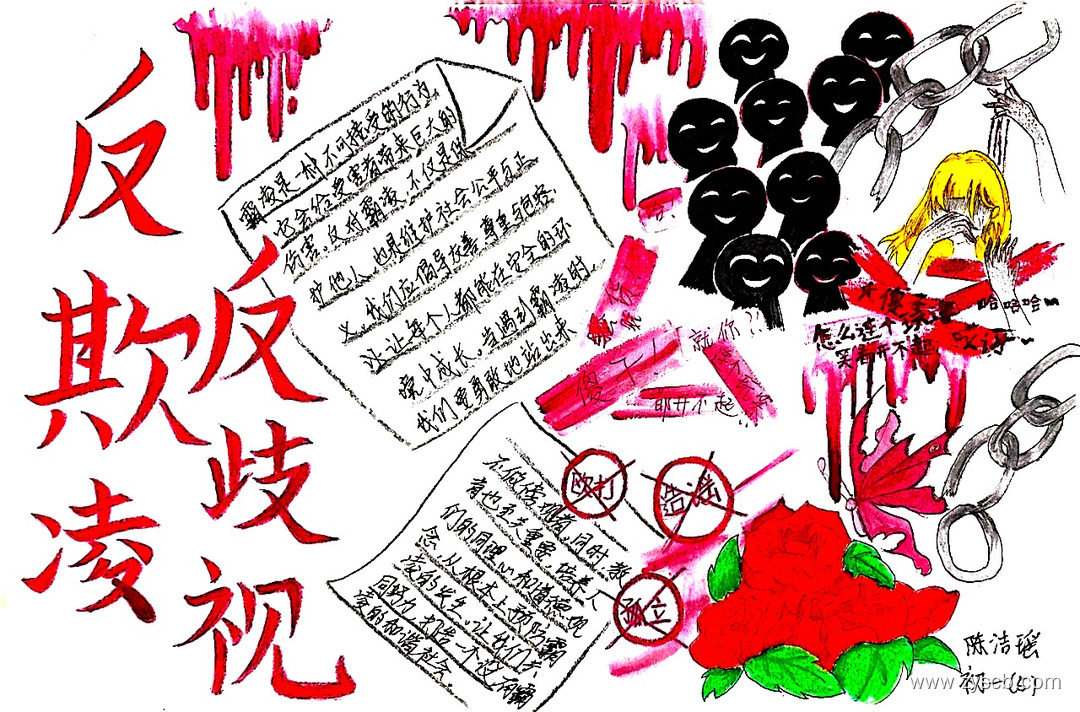 反欺凌
反歧视
霸凌是一种不可接受的行为,
它会给受害者带来巨大的
伤害。反对霸凌,不仅是保
护他人,也是维护社会公平与正
义。我们应倡导友善、尊重与包容,
让每个人都能在安全的环
境中成长。当遇到霸凌时,
我们要勇敢地站出来
不做旁观者。同时,教
育也至关重要,培养人
们的同理心和道德观
念,从根本上预防霸
凌的发生。让我们共
同努力,打造一个没有霸
凌的和谐社会。
殴打
造谣
孤立
傻子!
「就你?」
哈哈哈
怎么连个
笑都开不起
陈洁瑶
初一
www.zyeeb.com